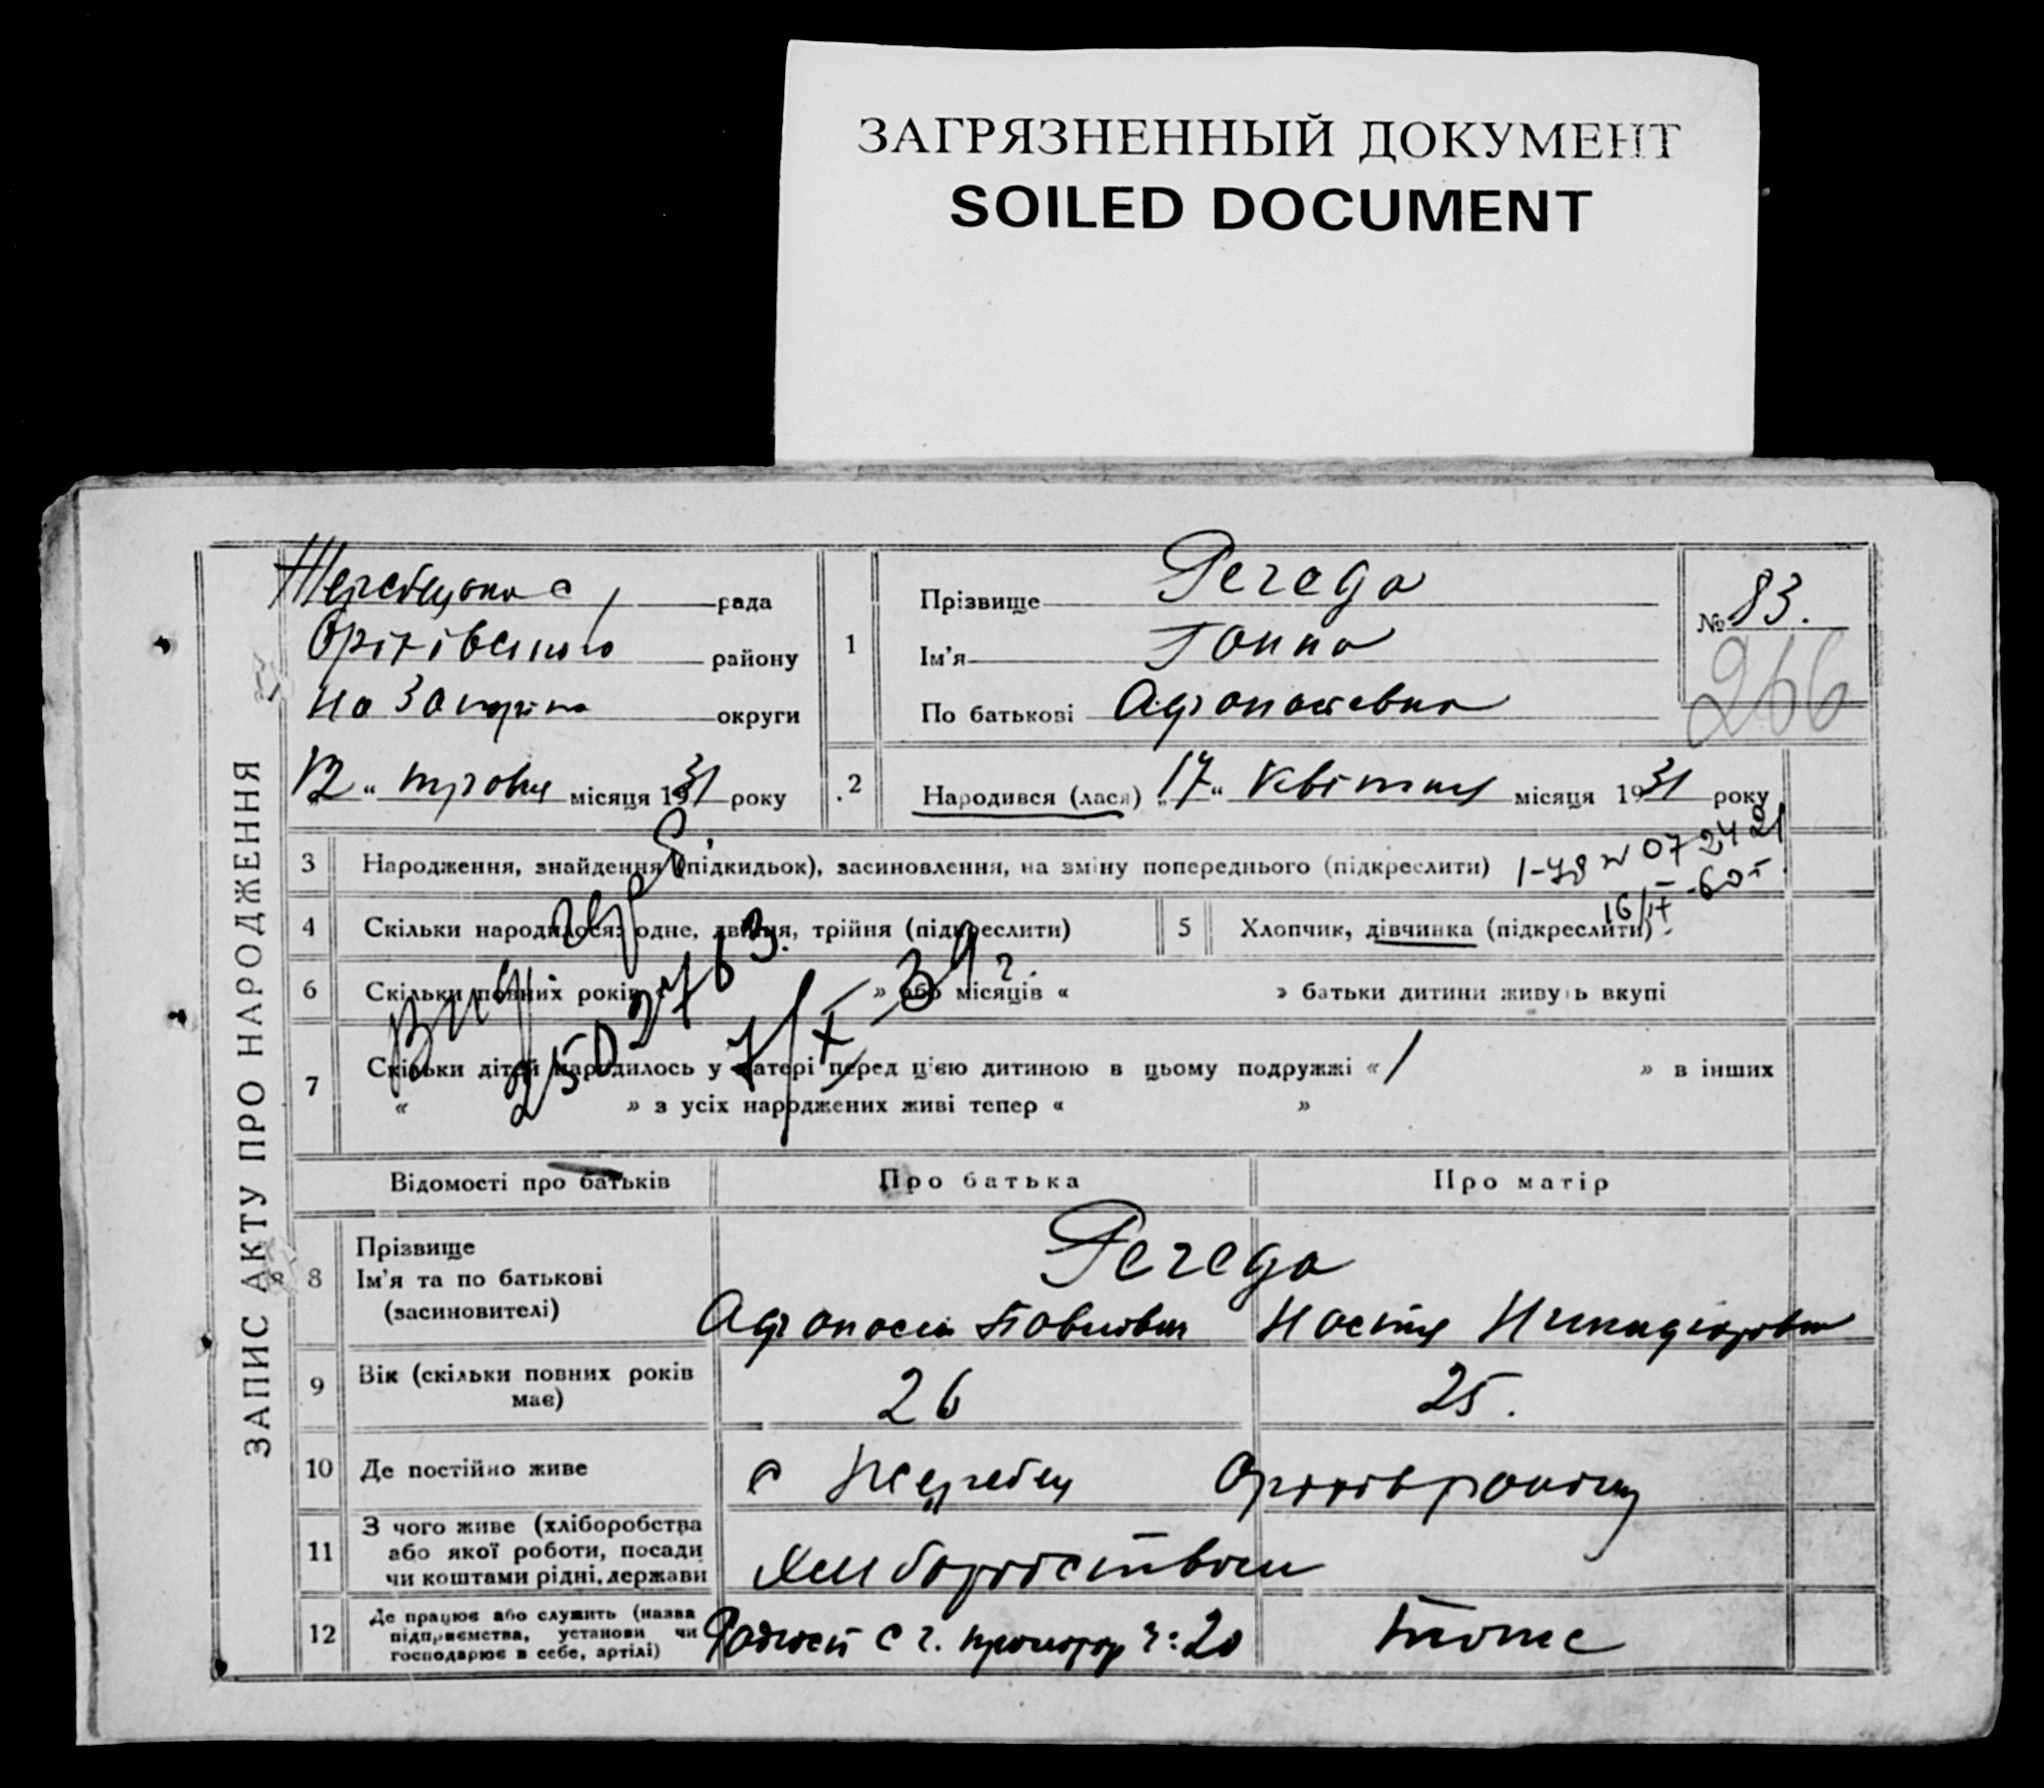 ЗАГРЯЗНЕННЫЙ ДОКУМЕНТ
SOILED DOCUMENT
ЗАПИС АКТУ ПРО НАРОДЖЕННЯ
рада
Оріхівського району
округи
12 " травня місяця 1931 року
1
Прізвище Регеда
Ім'я Ганна
По батькові Афанасієвна
№ 83.
266
2
Народився (лася) „17" квітня місяця 1931 року
3 Народження, знайдення (підкидьок), засиновлення, на зміну попереднього (підкреслити)
4 Скільки народилося: одне, двійня, трійня (підкреслити)
5 Хлопчик, дівчинка (підкреслити)
6 Скільки повних років « » або місяців « » батьки дитини живуть вкупі
7 Скільки дітей народилось у матері перед цією дитиною в цьому подружжі « 1 » в інших
« » з усіх народжених живі тепер « »
Відомості про батьків
Про батька
Про матір
8 Прізвище
Ім'я та по батькові
(засиновителі)
Регеда
Афанасій Павлович
Настя Никифоровна
9 Вік (скільки повних років
має)
26
25.
10 Де постійно живе
с Жеребец Оріхів району
11 З чого живе (хліборобства
або якої роботи, посади
чи коштами рідні, держави
Хліборобством
12 Де працює або служить (назва
підприємства, установи чи
господарює в себе, артілі)
тоже